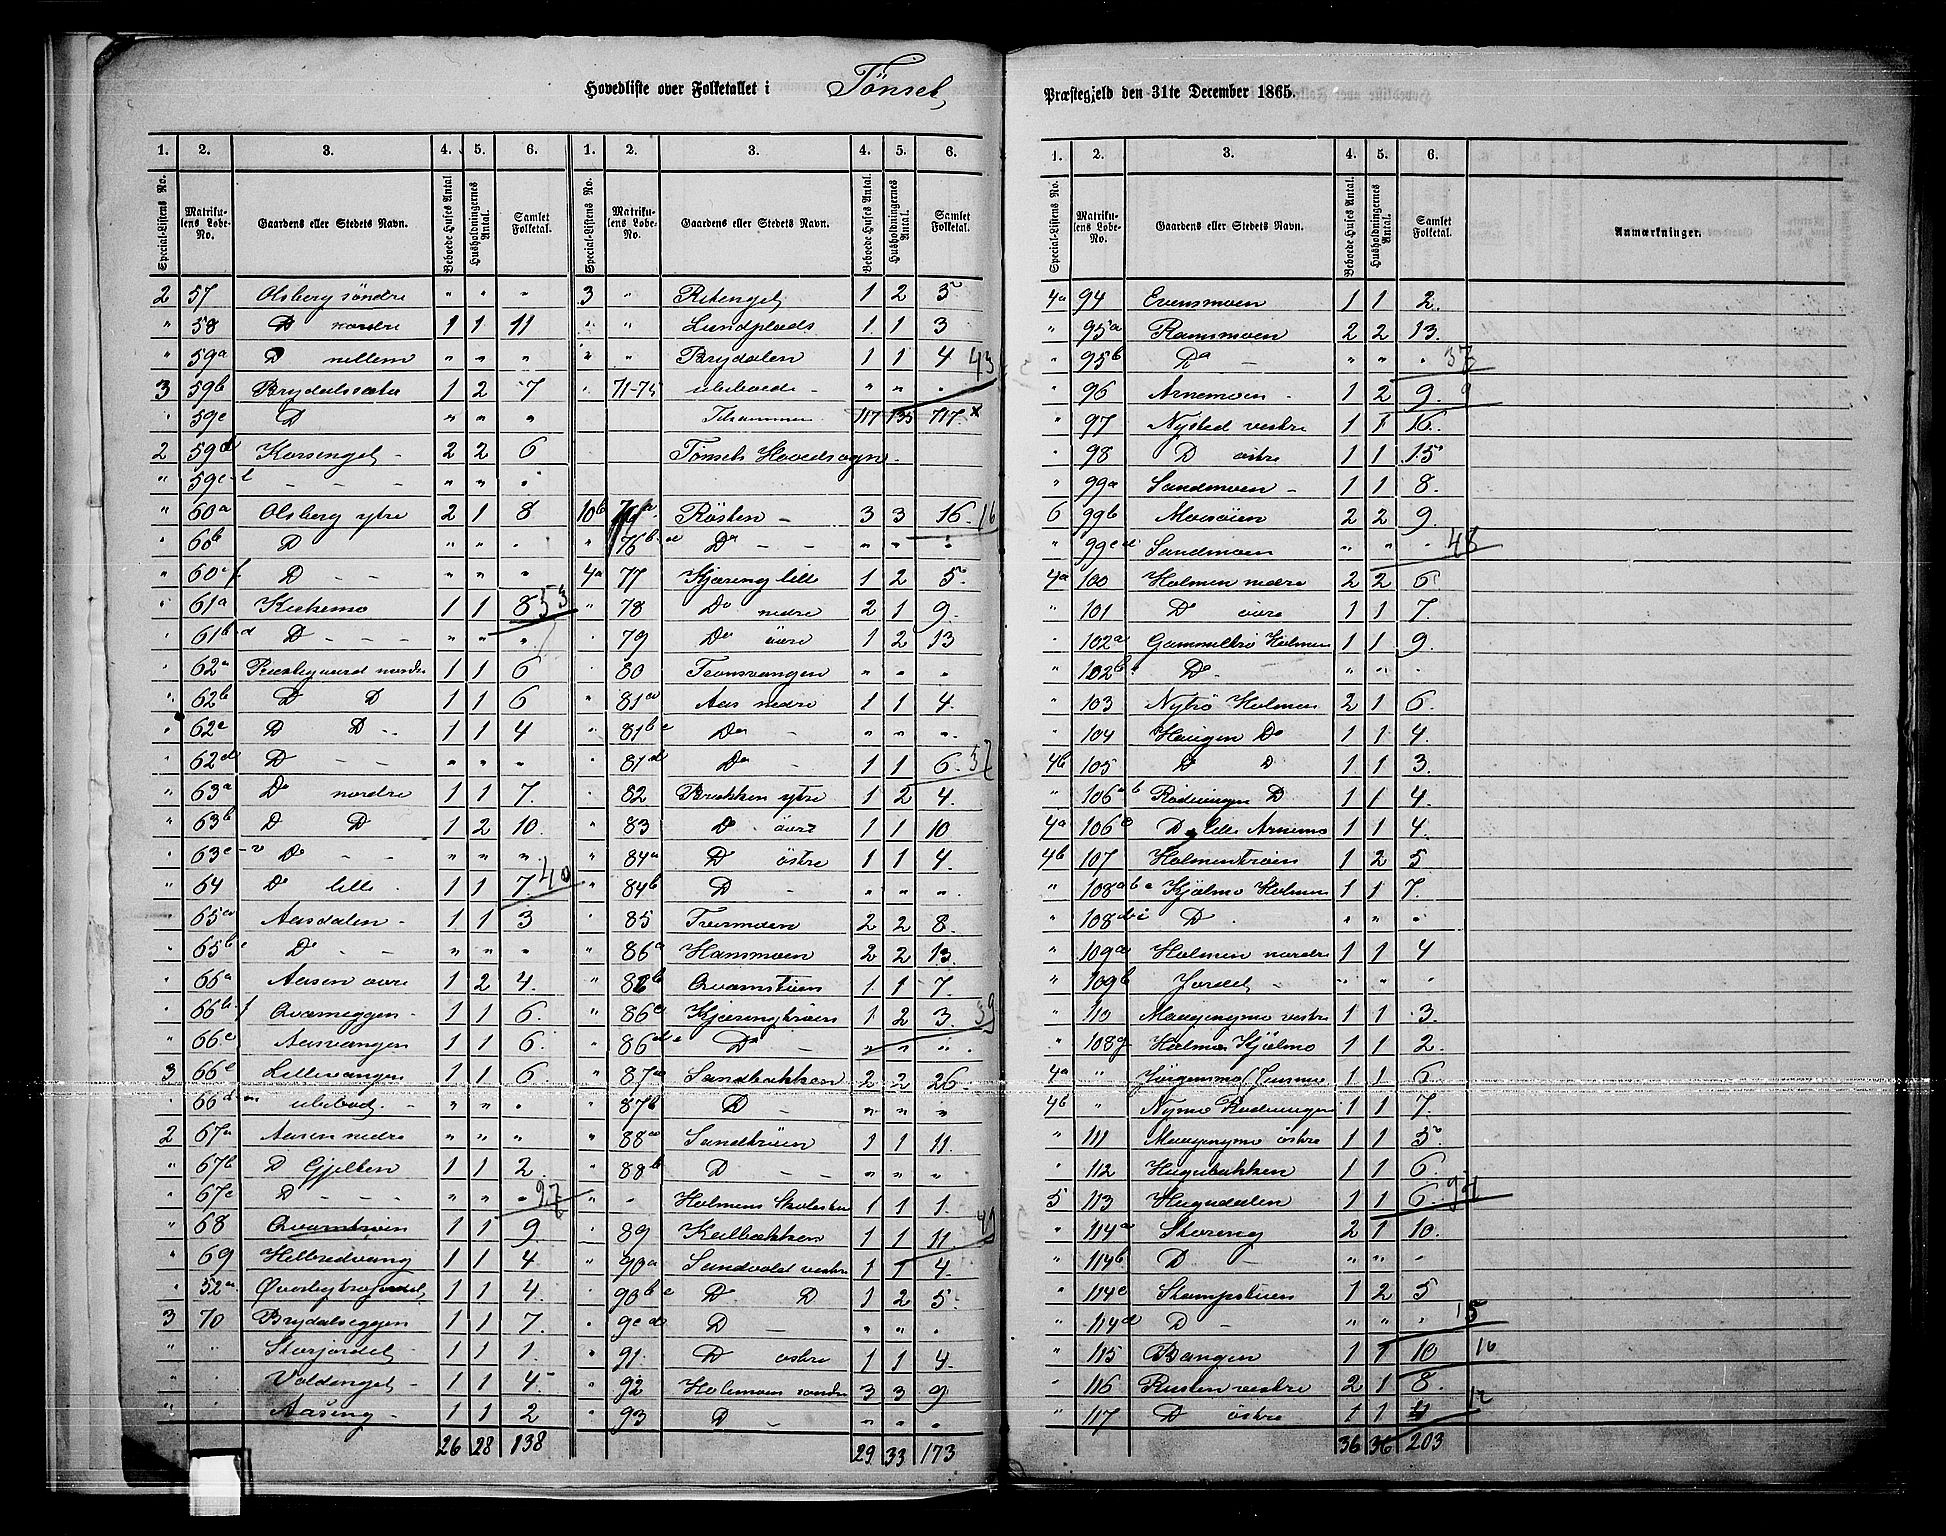 Hovedliste over Folketallet i Tönset
Præstegjeld den 31te December 1865.
1. 2. 3. 4. 5. 6. 1. 2. 3. 4. 5. 6.
Special-Listens No. Matrikulens Løbe-No. Gaardens eller Stedets Navn. Beboede Huses Antal Husholdningernes Antal. Samlet Folketal. Special-Listens No. Matrikulens Løbe-No. Gaardens eller Stedets Navn. Beboede Huses Antal. Husholdningernes Antal. Samlet Folketal.
2 57 Olsberg söndre " " "
" 58 D nordre 1 1 11
" 59a D mellem " " "
3 59b Brydalssæter 1 2 7
" 59c D " " "
2 59d Korsenget - 2 2 6
" 59e - - - " " "
" 60a Olsberg ytre 2 1 8
" 60b D " " "
" 60c f D - - " " "
" 61a Kirkemo 1 1 8 53
" 61b-d D - - - " " "
" 62a Præstegaard nordre 1 1 6
" 62b D D 1 1 6
" 62c D D - 1 1 4
" 62d D - - " " "
" 63a Do nordre 1 1 7.
" 63b D D 1 2 10.
" 63c Do - - " " "
" 64 Do lille 1 1 7 40
" 65a Aasdalen - 1 1 3
" 65b Do - - " " "
" 66a Aasen övre 1 2 4.
" 66b f Qvameggen - 1 1 6.
" 66c Aasvangen 1 1 6.
3 66e Lillevangen 1 1 6.
" 66d ubebod. - " " "
2 67a Aasen nedre " " "
" 67b D Gjelten 1 1 2.
" 67c D - - - " " " 27
" 68 Qvamtröen 1 1 9
" 69 Helbredvang 1 1 4
" 52a 1 1 4.
3 70 Brydalseggen 1 1 7.
" " Storjordet - 1 1 1.
" " Voldenget - 1 1 4
" " Aaseng - 1 1 2
26 28 138
3 " Ritenget 1 2 5
" " Lundplads 1 1 3
" " Brydalen 1 1 4 43
" 71-75 ubeboede - " " "
Tilsammen 117 135 717. x
Tönsets Hovedsogn -
10b 76a Rösten - 3 3 16. 16
" 76b-d Do - - " " "
4a 77 Kjæreng lille 1 2 5
" 78 Do nedre 2 1 9.
" 79 Do övre 1 2 13
" 80 Tronsvangen " " "
" 81a Aas nedre 1 1 4.
" 81b c Do - " " "
" 81d Do - 1 1 6. 37
" 82 Brækken ytre 1 2 4.
" 83 D övre 1 1 10
" 84a D östre 1 1 4.
" 84b D - " " "
" 85 Tveramoen 2 2 8.
" 86a Hansmoen 2 2 13.
" 86b Qvamstuen 1 1 7.
" 86c Kjærengtröen 1 2 3. 39
" 86d e Do - " " "
" 87a Sandbakken 2 2 26
" 87b D - " " "
" 88a Sandtröen 1 1 11.
" 88b D - - " " "
" - Holmens Skolestue 1 1 1.
" 89 Kulbækken 1 1 11. 49
" 90a Sundvold vestre 1 1 4.
" 90b c D D 1 2 5.
" D - " " "
" 91 D östre 1 1 4.
" 92 Holmen söndre 3 3 9
" 93 D - " " "
29 33 173
1. 2. 3. 4. 5. 6.
Special-Listens No. Matrikulens Løbe-No. Gaardens eller Stedets Navn. Beboede Huses Antal. Husholdningernes Antal. Samlet Folketal. Anmærkninger.
4a 94 Evensmoen 1 1 2.
" 95a Ramsmoen 2 2 13.
" 95b Do - " " " 37
" 96 Arnemoen - 1 2 9. 9
" 97 Nysted vestre 1 1 16.
" 98 D östre 1 1 15
" 99a Sandmoen - 1 1 8.
6 99b Mosöien 2 2 9.
" 99c d Sandmoen " " " 48
4a 100 Holmen nedre 2 2 6
" 101 D övre 1 1 7.
" 102a Gammeltrö Holmen 1 1 9
" 102b Do - " " "
" 103 Nytrö Holmen 2 1 6.
" 104 Haugen Do 1 1 4.
4b 105 D D 1 1 3.
" 106a b Rödningen D 1 1 4.
4a 106c D lille Arnemo 1 1 4.
4b 107 Holmentröen 1 2 5
" 108a b c Kjölmo Holmen 1 1 7.
" 108d-i D - " " "
" 109a Holmen nordre 1 1 4
" 109b Jordet - " " "
" 110 Maagengmo vestre 1 1 3.
" 108g Holmen Kjölmo 1 1 2.
4a " 1 1 6.
4b " Nymo Rödningen 1 1 7.
" 111 Maagengmo östre 1 1 5.
" 112 Hugubakken 1 1 6.
5 113 Hugudalen 1 1 6. 94
" 114a Storeng 2 1 10.
" 114b D - " " "
" 114c Stampstuen 1 2 5
" 114d D - " " " 15
" 115 Bangen 1 1 10 10
" 116 Rusten vestre 2 1 8.
" 117 D östre 1 1 4 12
36 36 203